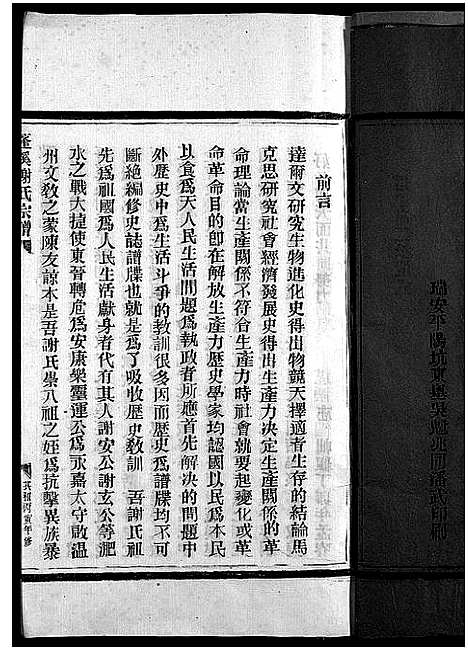 前言
達爾文研究生物進化史得出物競天擇適者生存的結論馬
克思研究社會經濟發展史得出生產力決定生產關係革
命理論當生產關係不符合生產力時社會就要起變化或革
命革命目的卽在解放生產力歷史學家均認國以民為本民
以食為天人民生活問題為執政者所應首先解決的問題中
外歷史中為生活斗爭的教訓很多因而歷史為譜牒均不可
斷絕編修史誌譜牒也就是為了吸收歷史教訓 吾謝氏祖
先為祖國為人民生活獻身者代有其人謝安公謝玄公等淝
水之戰大捷使東晉轉危為安康樂靈運公為永嘉太守啟溫
州文教之蒙陳友諒本是吾謝氏榮八祖之姪為抗擊異族暴
蓬溪謝氏宗譜